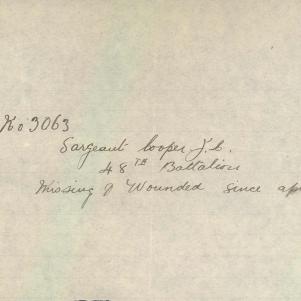 No 3063
Sargeant Cooper J.C.
48TH Battalion
Missing & Wounded since